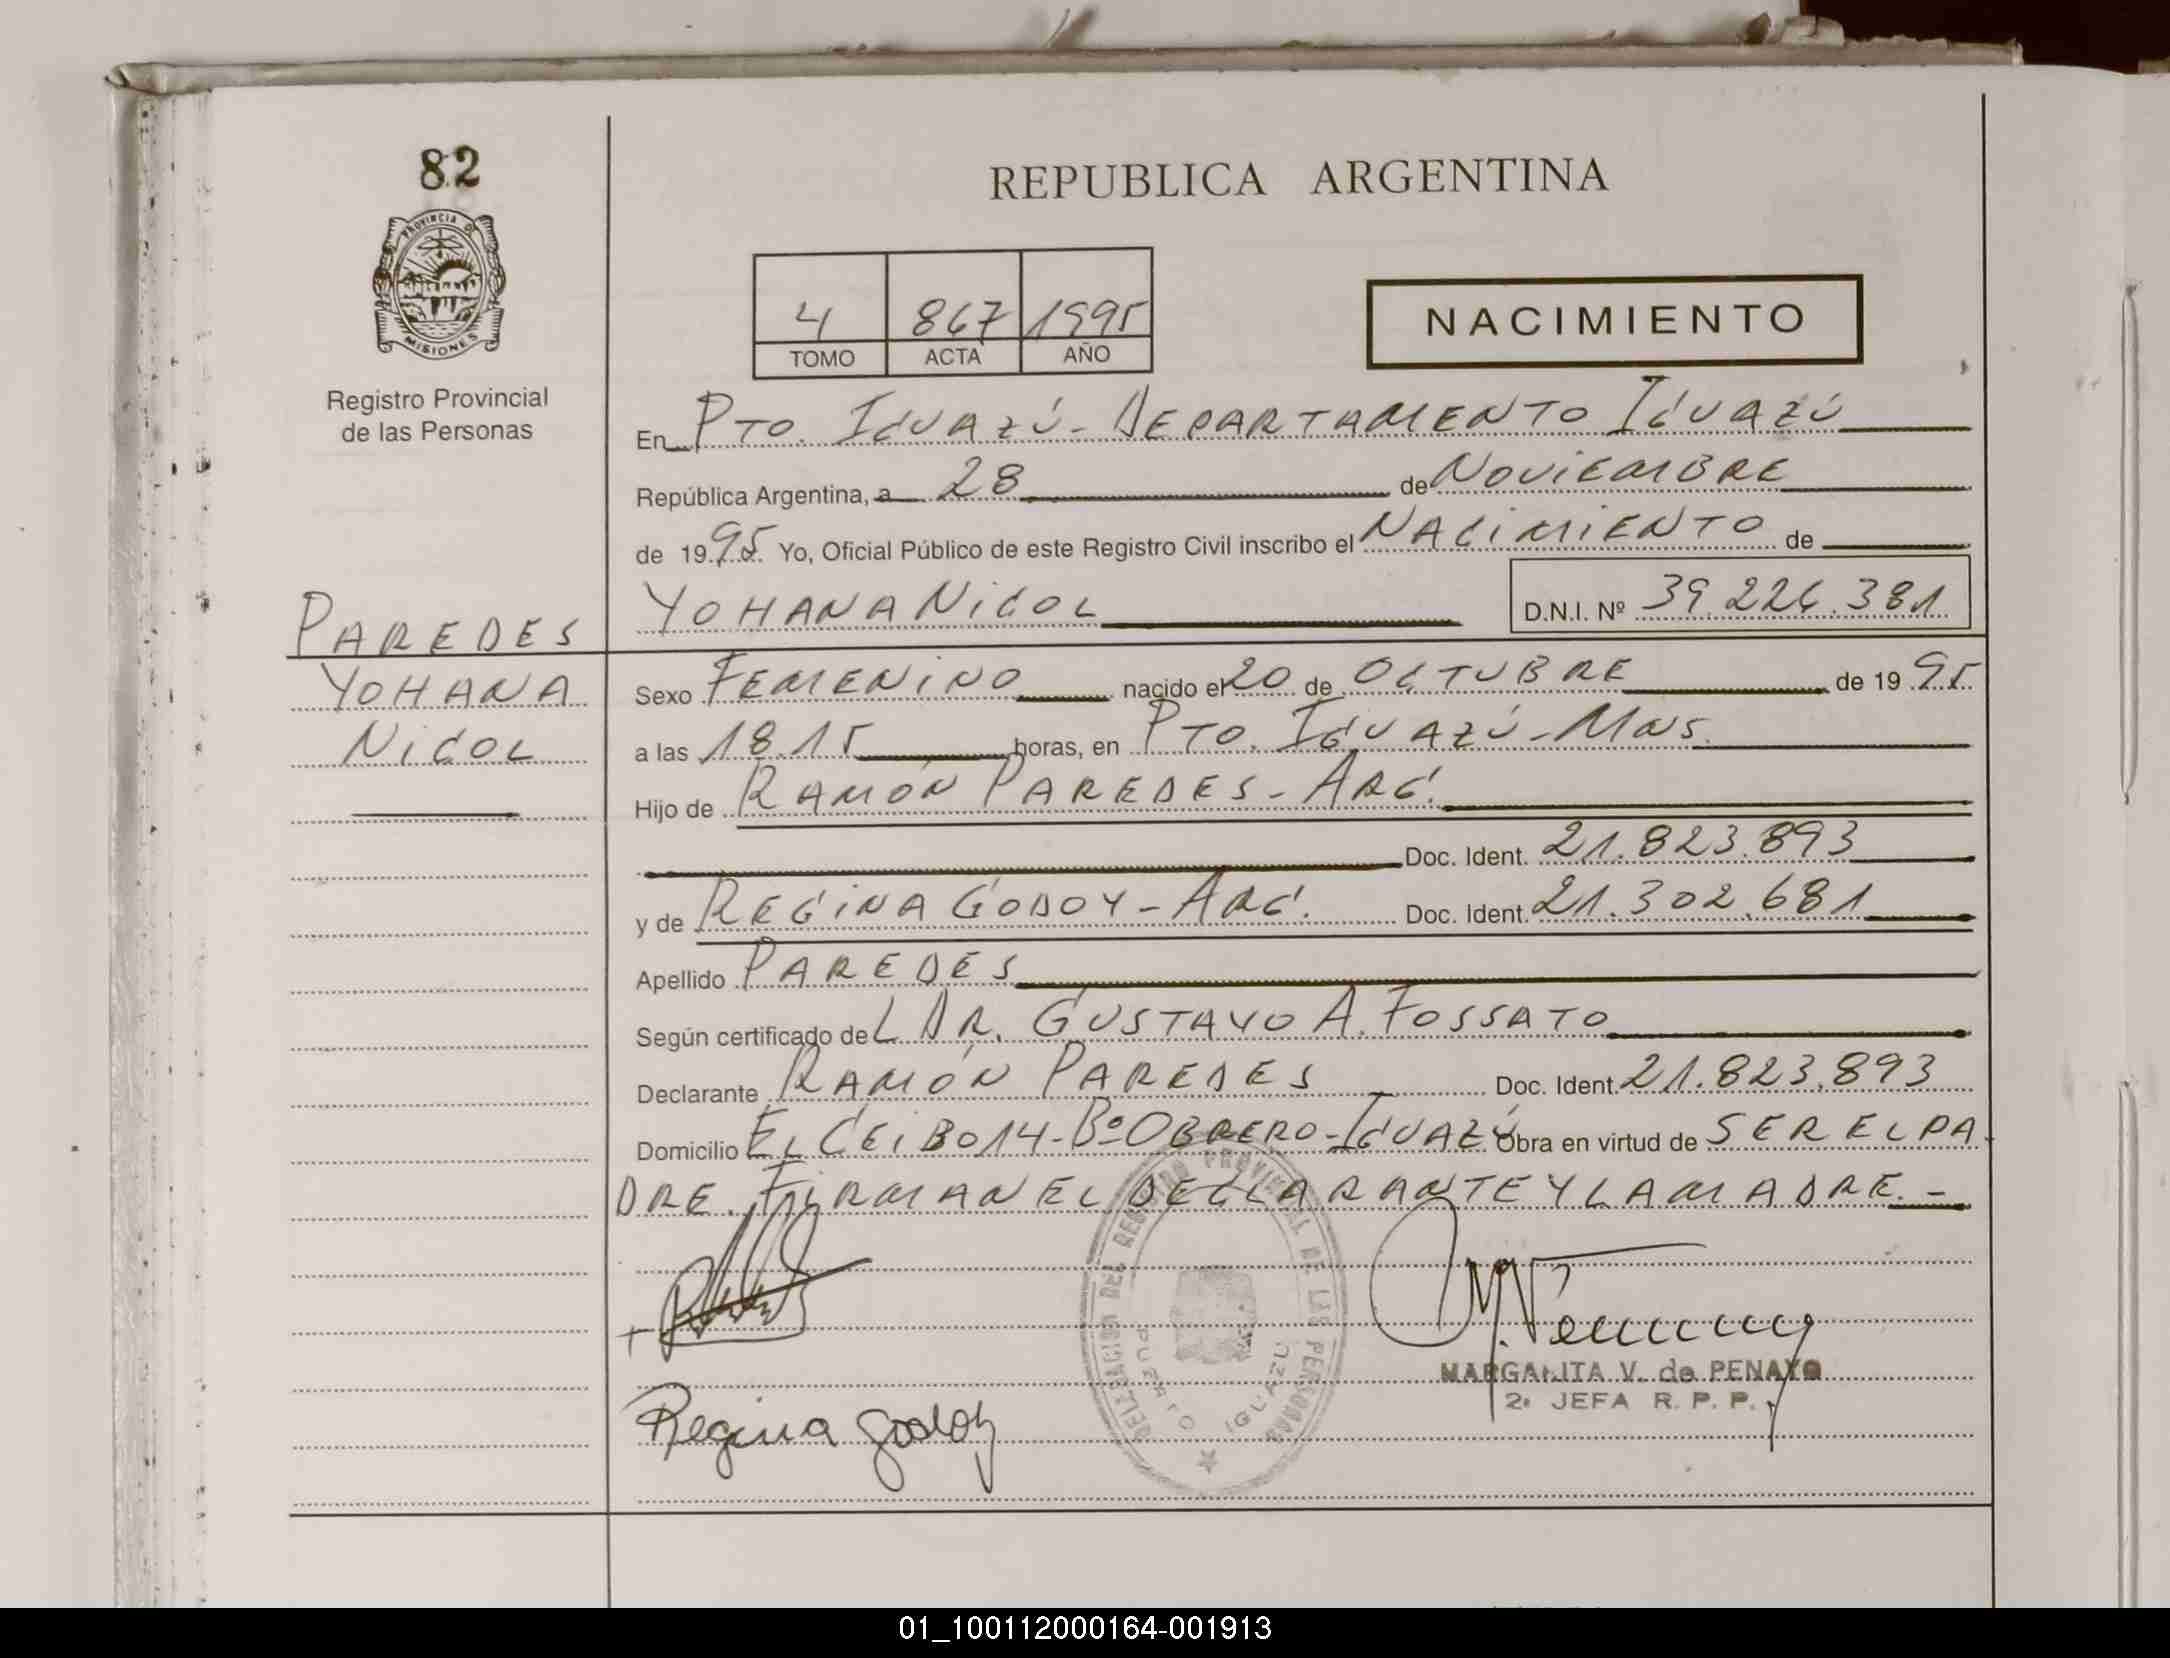 82
PROVINCIA DE
MISIONES
Registro Provincial
de las Personas
PAREDES
YOHANA
NICOL
REPUBLICA ARGENTINA
4 867 1995
TOMO ACTA AÑO
NACIMIENTO
En PTO. IGUAZÚ - DEPARTAMENTO IGUAZÚ
República Argentina, a 28 de NOVIEMBRE
de 1995. Yo, Oficial Público de este Registro Civil inscribo el NACIMIENTO de
YOHANA NICOL D.N.I. Nº 39.226.381
Sexo FEMENINO nacido el 20 de OCTUBRE de 1995
a las 18.15 horas, en PTO. IGUAZÚ - MNS.
Hijo de RAMÓN PAREDES - ARG.
Doc. Ident. 21.823.893
y de REGINA GODOY - ARG. Doc. Ident. 21.302.681
Apellido PAREDES
Según certificado de L DR. GUSTAVO A. FOSSATO
Declarante RAMÓN PAREDES Doc. Ident. 21.823.893
Domicilio EL CEIBO 14 - Bº OBRERO - IGUAZÚ Obra en virtud de SER EL PA
DRE. FIRMAN EL DECLARANTE Y LA MADRE. -
DELEGACION DEL REGISTRO PROVINCIAL DE LAS PERSONAS
PUERTO IGUAZU
MARGARITA V. de PENAYO
2ª JEFA R. P. P.
Regina Godoy
01_100112000164-001913